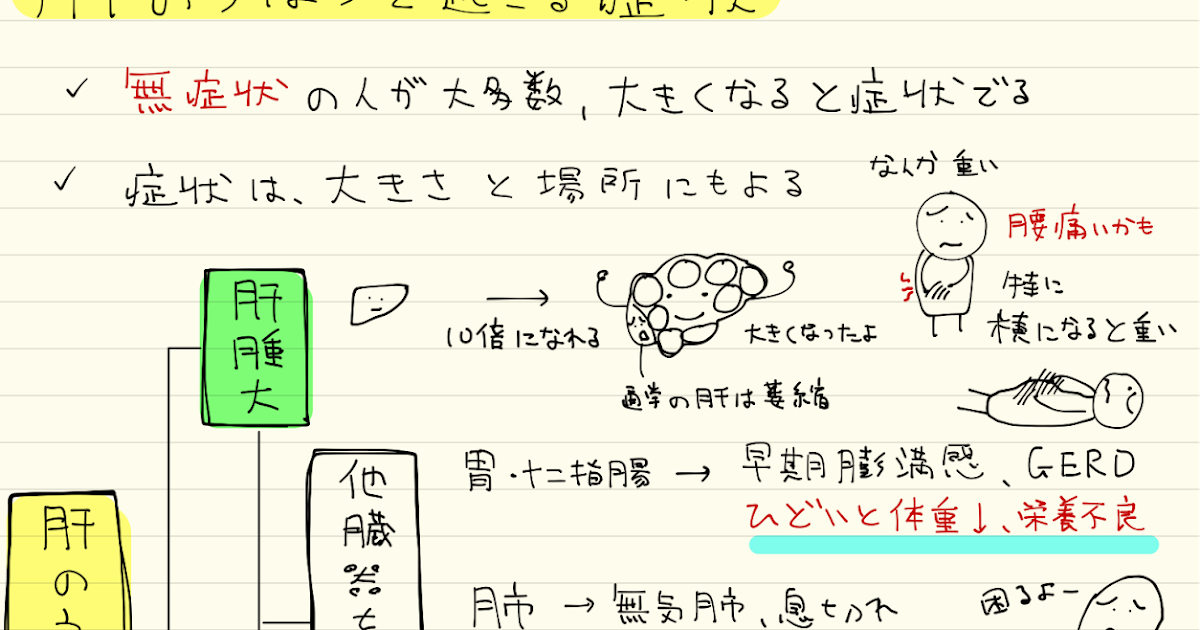 肝のう胞で起こる症状
✓ 無症状の人が大多数,大きくなると症状でる
✓ 症状は、大きさと場所にもよる
なんか重い
腰痛いかも
特に
横になると重い
肝腫大
10倍になれる
大きくなったよ
通常の肝は萎縮
他臓器を
胃・十二指腸 → 早期膨満感、GERD
ひどいと体重↓、栄養不良
肝のう
肺 → 無気肺、息切れ
困るよー